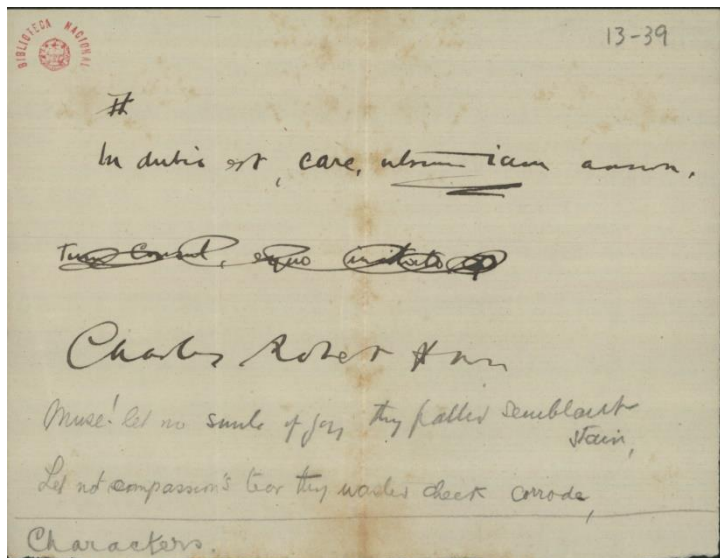 BIBLIOTECA NACIONAL
13-39
#
In dubio est, care, utrum iam
Tum Consul, equo
Charles Robert
Muse! let no smile of joy thy pallid semblant
stain,
Let not compassion's tear thy wasted cheek corrode,
Characters.